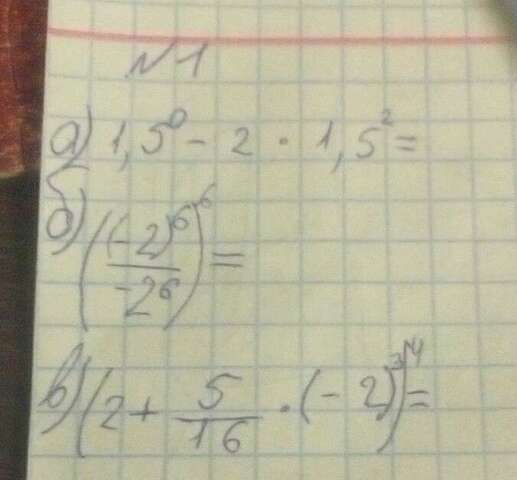 №1
а) 1,5⁰ - 2 · 1,5² =
б) ((-2)⁶ / -2⁶)⁶ =
в) (2 + 5/16 · (-2)³)⁴ =